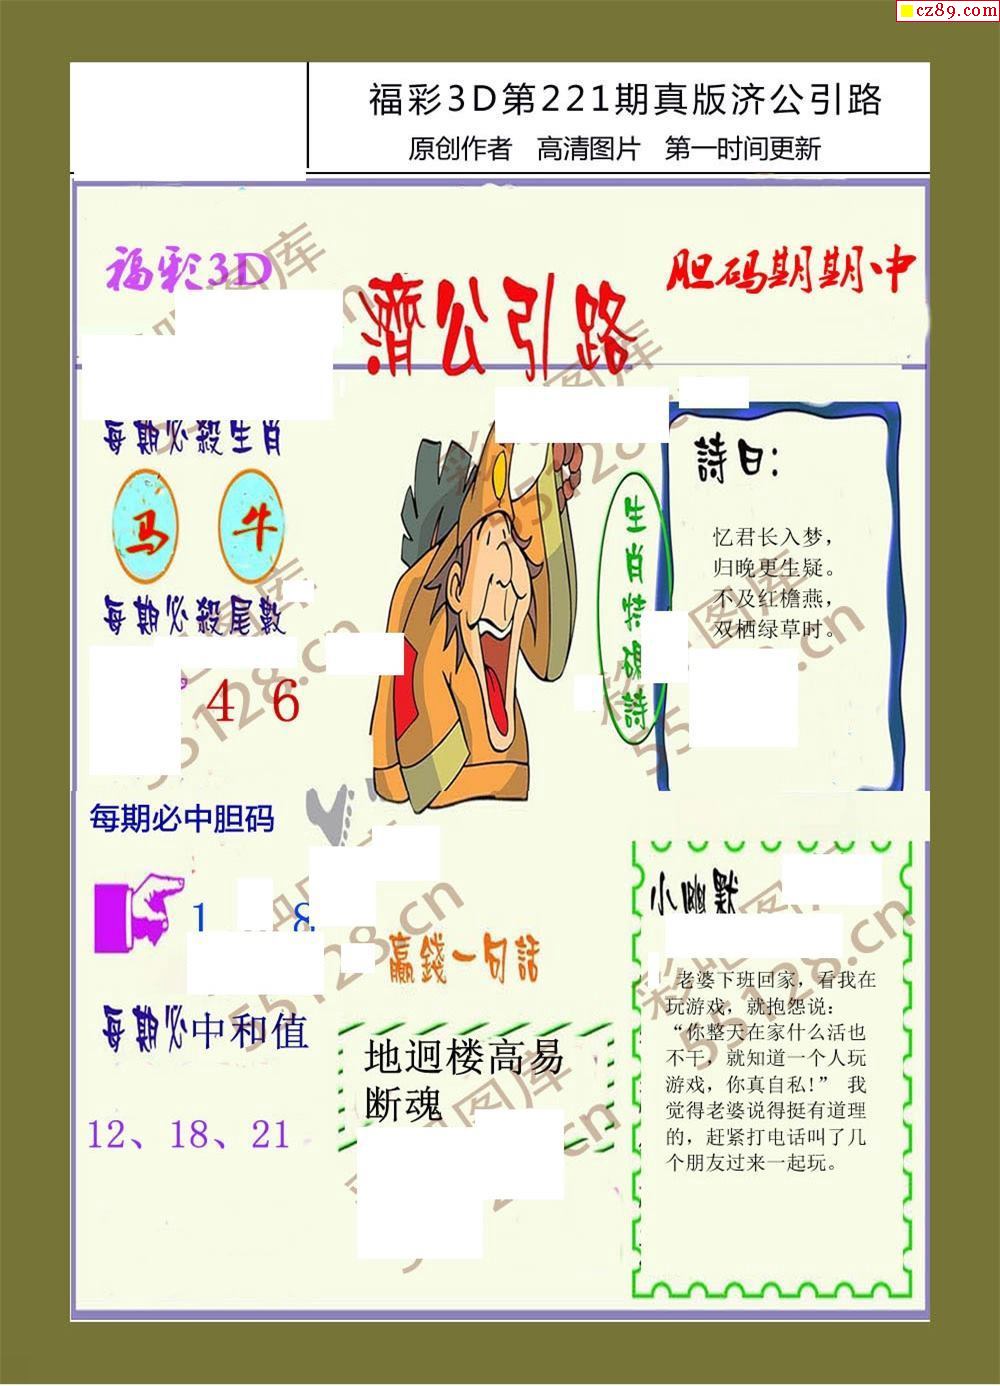 cz89.com
福彩3D第221期真版济公引路
原创作者 高清图片 第一时间更新
福彩3D
濟公引路
胆码期期中
每期必殺生肖
马 牛
每期必殺尾數
4 6
每期必中胆码
1 8
每期必中和值
12、18、21
生肖特碼詩
詩曰:
忆君长入梦，
归晚更生疑。
不及红檐燕，
双栖绿草时。
贏錢一句話
地迥楼高易
断魂
小幽默
老婆下班回家，看我在
玩游戏，就抱怨说：
“你整天在家什么活也
不干，就知道一个人玩
游戏，你真自私!” 我
觉得老婆说得挺有道理
的，赶紧打电话叫了几
个朋友过来一起玩。
55128.cn
55128.cn
55128.cn